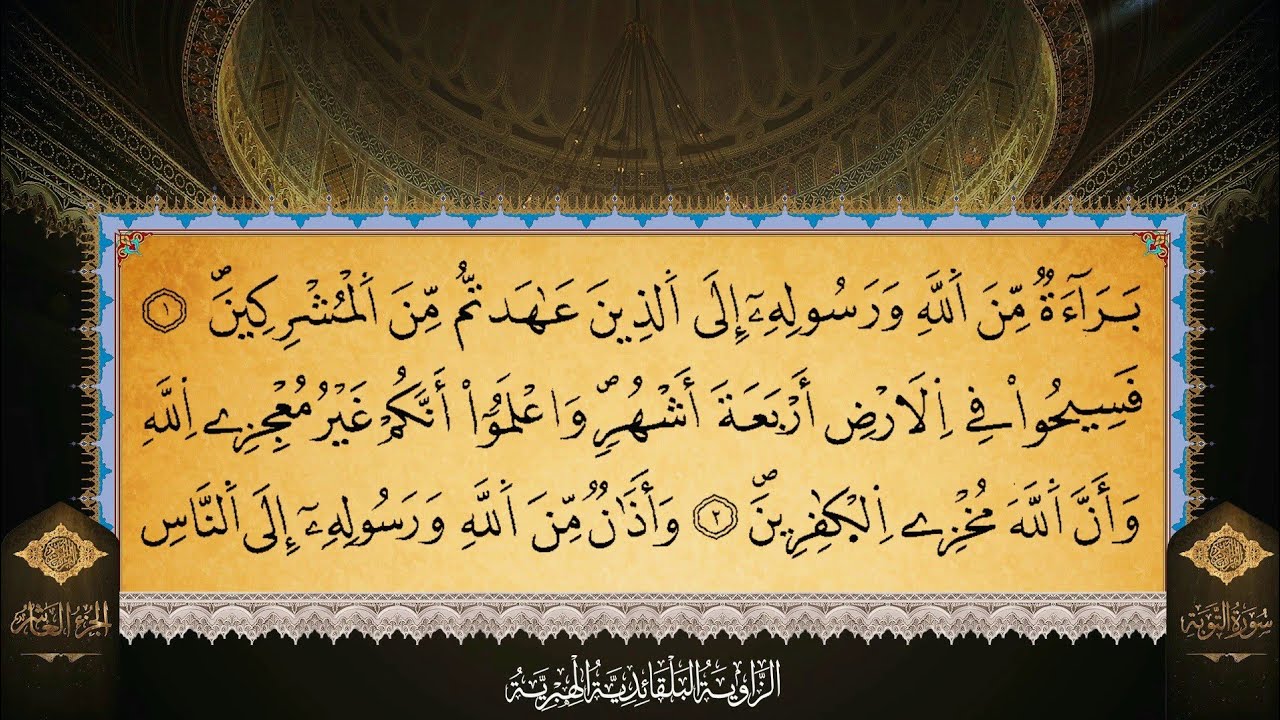 بَرَآءَةٌ مِّنَ اَ۬للَّهِ وَرَسُولِهِۦٓ إِلَى اَ۬لذِينَ عَٰهَدتُّم مِّنَ اَ۬لْمُشْرِكِينَۖ ١
فَسِيحُواْ فِے اِ۬لَارْضِ أَرْبَعَةَ أَشْهُرٖۖ وَاعْلَمُوٓاْ أَنَّكُمْ غَيْرُ مُعْجِزِے اِ۬للَّهِ
وَأَنَّ اَ۬للَّهَ مُخْزِے اِ۬لْكَٰفِرِينَۖ ٢ وَأَذَٰنٞ مِّنَ اَ۬للَّهِ وَرَسُولِهِۦٓ إِلَى اَ۬لنَّاسِ
الجزء العاشر
سُورَةُ التَّوْبَة
الزَّاوِيَةُ البَلْقَائِدِيَّةُ الهِبْرِيَّةُ